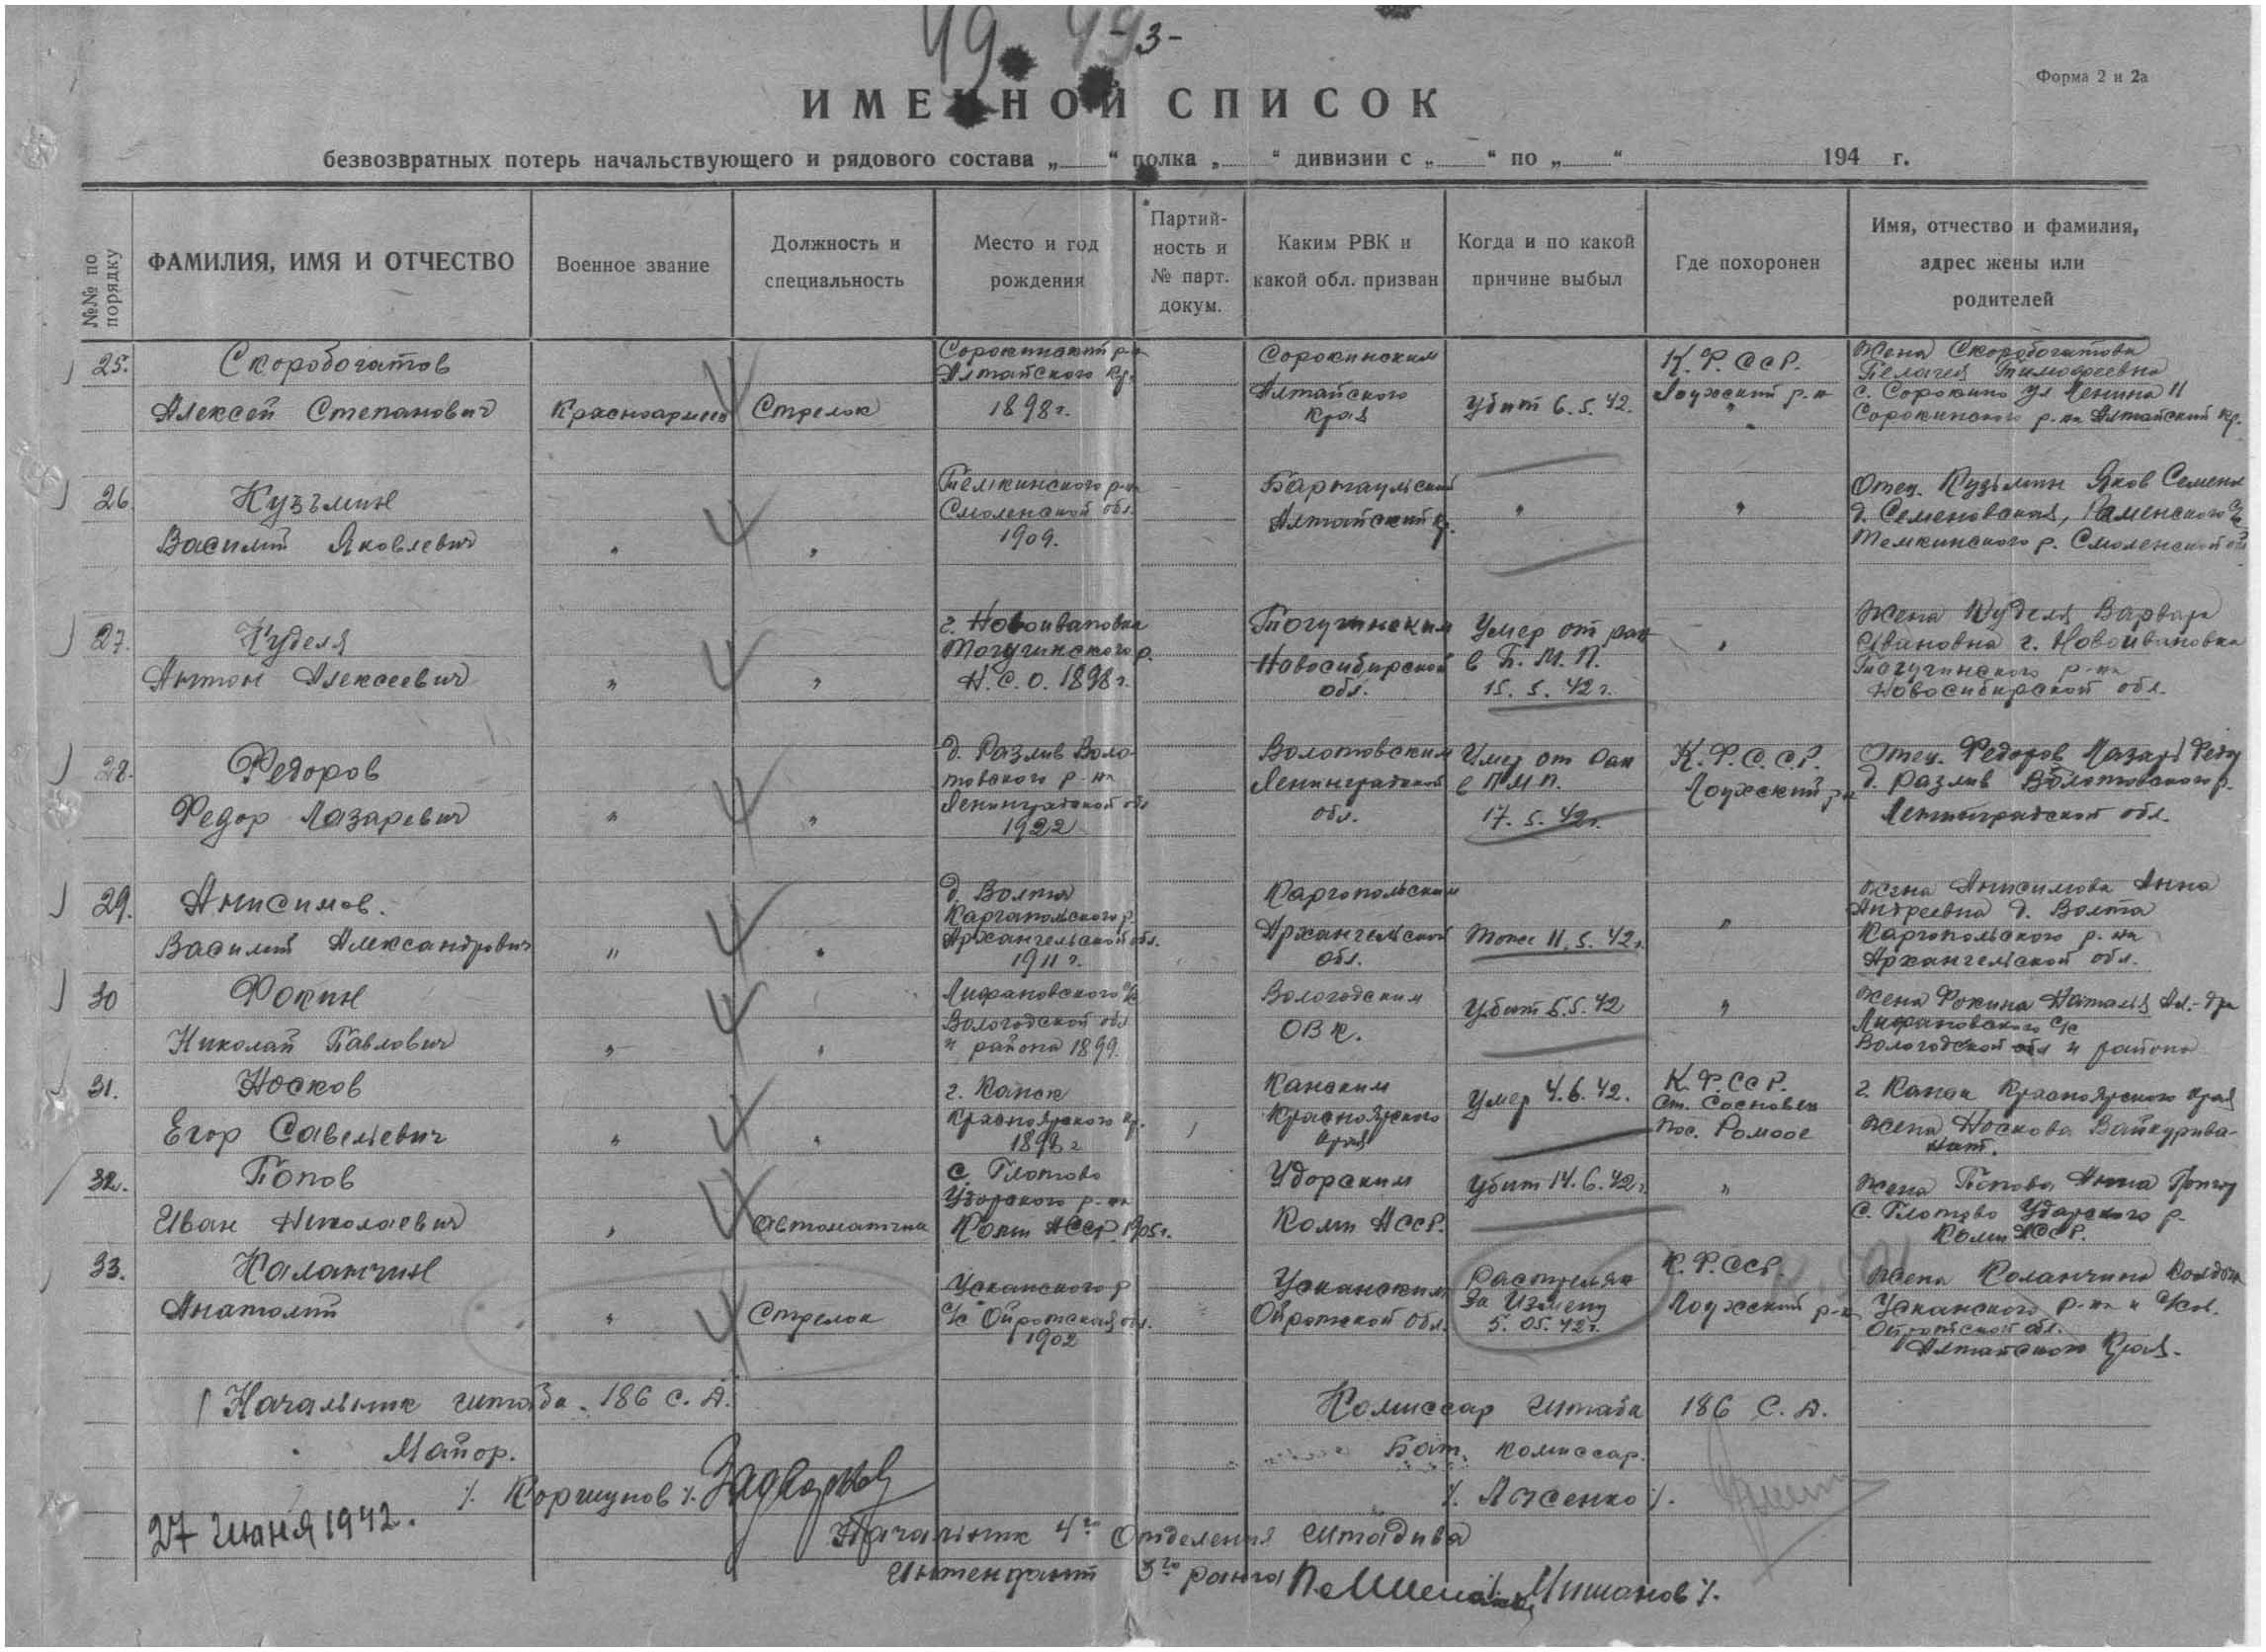 49. 49 3-
Форма 2 и 2а
ИМЕННОЙ СПИСОК
безвозвратных потерь начальствующего и рядового состава „ “ полка „ “ дивизии с „ “ по „ “ 194 г.
№№ по порядку
ФАМИЛИЯ, ИМЯ И ОТЧЕСТВО
Военное звание
Должность и специальность
Место и год рождения
Партий-ность и № парт. докум.
Каким РВК и какой обл. призван
Когда и по какой причине выбыл
Где похоронен
Имя, отчество и фамилия, адрес жены или родителей
25. Скоробогатов
Алексей Степанович
Красноармеец
Стрелок
Сорокинский р-н
Алтайского кр.
1898 г.
Сорокинским
Алтайского
края
Убит 6.5.42.
К.Ф.ССР.
Лоухский р-н
Жена Скоробогатова
Пелагея Тимофеевна
с. Сорокино ул Ленина 11
Сорокинского р-на Алтайский кр.
26 Кузьмин
Василий Яковлевич
" "
Темкинского р-на
Смоленской обл.
1909.
Барнаульский
Алтайский кр.
"
"
Отец. Кузьмин Яков Семен
д. Семеновская, Раменского с/с
Темкинского р. Смоленской обл
27. Куделя
Антон Алексеевич
" "
г. Новоивановка
Тогучинского р.
Н.С.О. 1898 г.
Тогучинским
Новосибирской
обл.
Умер от ран
в П.М.П.
15.5.42 г.
"
Жена Куделя Варвара
Ивановна г. Новоивановка
Тогучинского р-на
Новосибирской обл.
28. Федоров
Федор Лазаревич
" "
д. Разлив Воло-
товского р-на
Ленинградской обл
1922
Волотовским
Ленинградской
обл.
Умер от ран
в ПМП.
17.5.42 г.
К.Ф.С.С.Р.
Лоухский р-н
Отец. Федоров Лазарь Федор
д. Разлив Волотовского р.
Ленинградской обл.
29. Анисимов.
Василий Александрович
" "
д. Волта
Каргапольского р.
Архангельской обл.
1911 г.
Каргопольским
Архангельской
обл.
Тоже 11.5.42 г.
"
Жена Анисимова Анна
Андреевна д. Волта
Каргопольского р-на
Архангельской обл.
30 Фокин
Николай Павлович
" "
Лифановского с/с
Вологодской обл
и района 1899.
Вологодским
ОВК.
Убит 6.5.42
"
Жена Фокина Наталья Ал-дра
Лифановского с/с
Вологодской обл и района
31. Носков
Егор Савельевич
" "
г. Канск
Красноярского кр.
1898 г
Канским
Красноярского
края
Умер 4.6.42.
К.Ф.ССР.
ст. Сосновец
пос.
г. Канск Красноярского края
Жена Носкова
32. Попов
Иван Николаевич
"
Автоматчик
с. Глотово
Удорского р-на
Коми АССР. 1905 г.
Удорским
Коми АССР.
Убит 14.6.42 г
"
Жена Попова Анна Григор
с. Глотово Удорского р.
Коми АССР.
33. Каланчин
Анатолий
"
Стрелок
Усканского р
с/с Ойротская обл.
1902
Усканским
Ойротской обл.
Расстрелян
за Измену
5.05.42 г.
К.Ф.ССР.
Лоухский р-н
Жена Каланчина
Усканского р-на и с/сов.
Ойротской обл.
Алтайского Края.
Начальник штаба 186 С.Д.
Майор.
/. Коршунов /.
Комиссар штаба 186 С.Д.
Бат. комиссар.
/. Ляженко /.
27 июня 1942.
Начальник 4го Отделения Штадива
Интендант 3го ранга
/. Мишанов /.